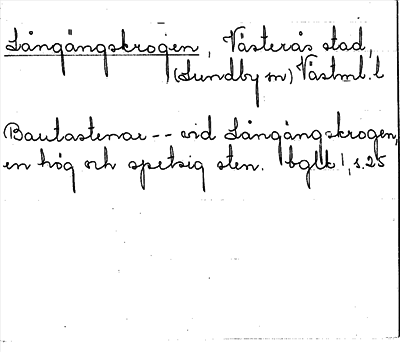 Långängskrogen, Västerås stad,
(Lundby sn) Västml. l
Bautastenar -- vid Långängskrogen,
en hög och spetsig sten. bglk 1, s. 25